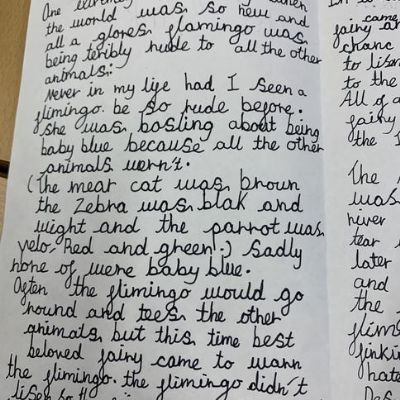 the world was so new and
all a glores flamingo was
being teribly rude to all the other
animals.
Never in my life had I seen a
flimingo. be so rude before.
She was bosling about being
baby blue because all the other
animals wern't.
(The mear cat was brown
the Zebra was blak and
wight and the parrot was
yelo, Red and green!.) Sadly
none of were baby blue.
Ogten the flimingo would go
round and tees the other
animals, but this time best
beloved fairy came to warn
the flimingo. the flimingo didn't
came
fairy
chanc
to lisen
to the
All of a
fairy
the
The
was
river
tear
later
and
the
flim
jinkin
hate